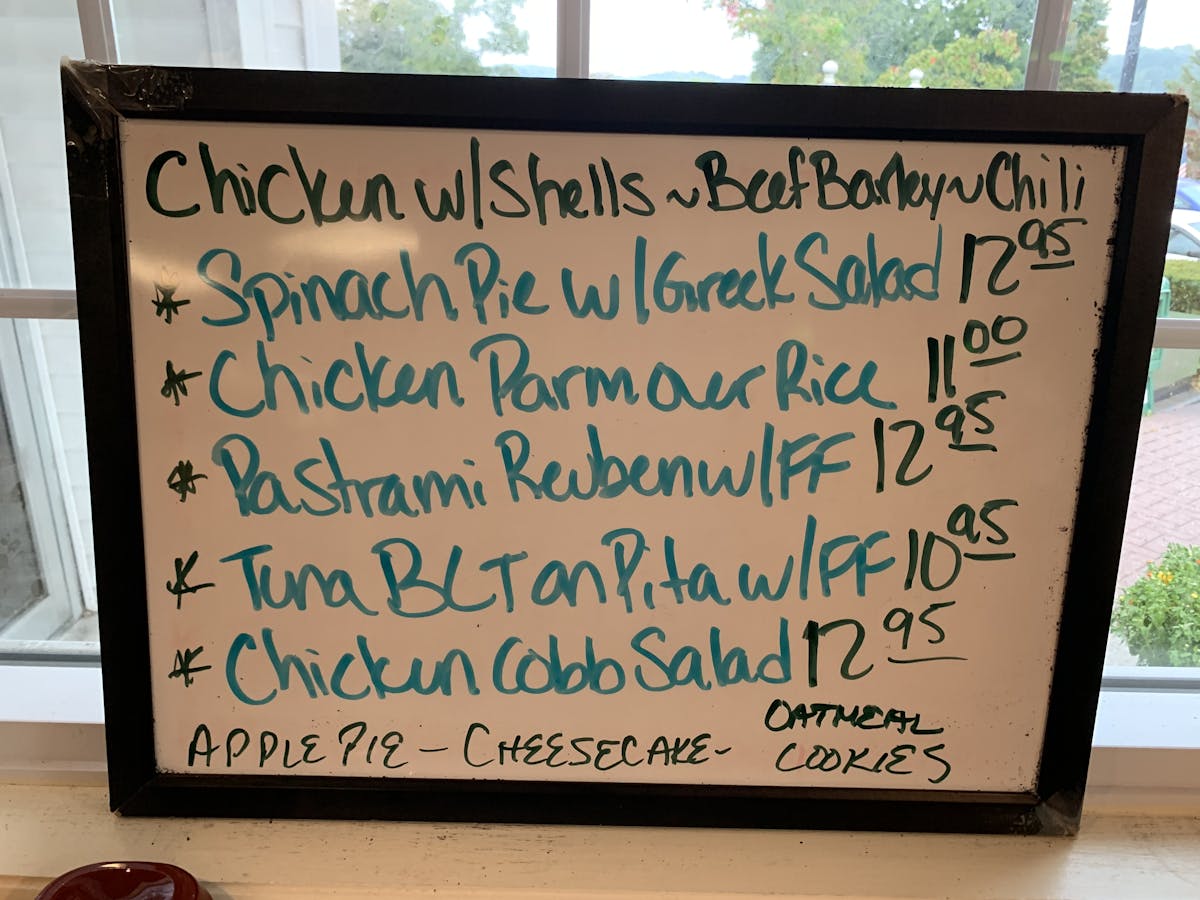 Chicken w/Shells ~ Beef Barley ~ Chili
* Spinach Pie w/Greek Salad 12 95
* Chicken Parm over Rice 11 00
* Pastrami Reuben w/FF 12 95
* Tuna BLT on Pita w/FF 10 95
* Chicken Cobb Salad 12 95
APPLE PIE - CHEESECAKE - OATMEAL
COOKIES